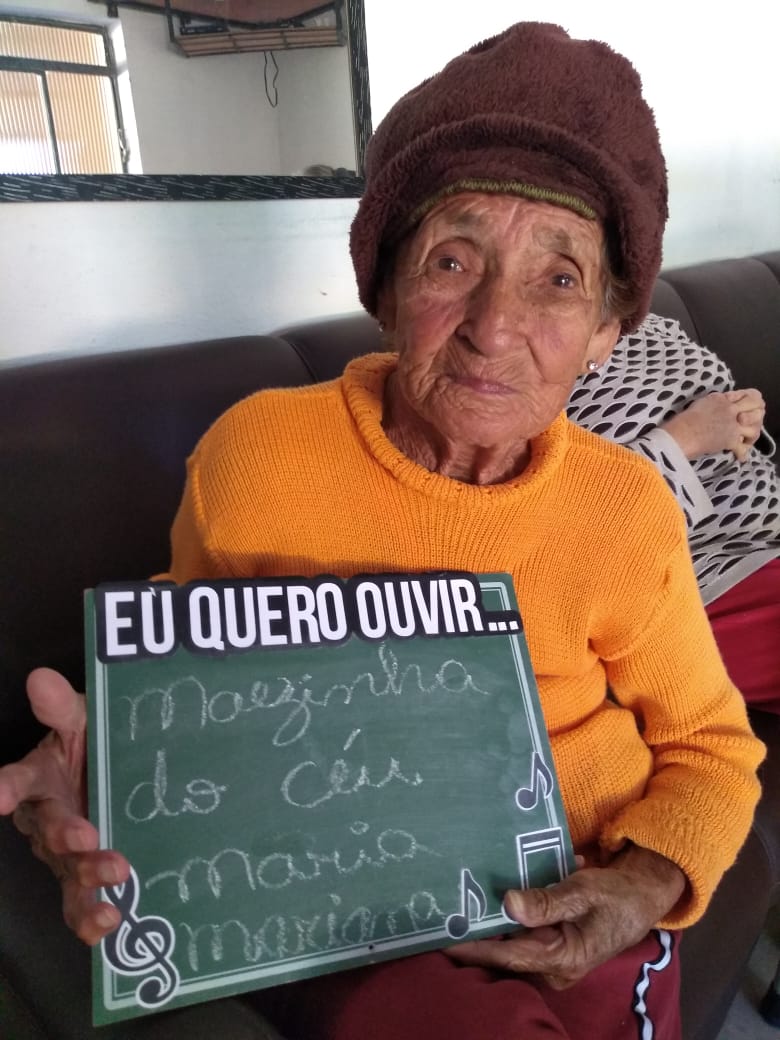 EU QUERO OUVIR...
Maezinha
do céu
Maria
Mariana